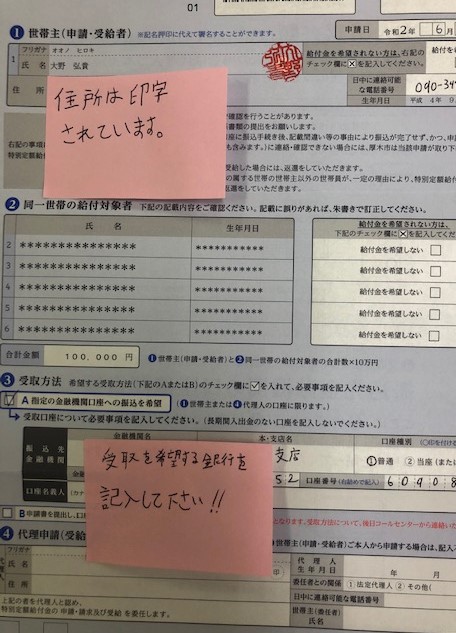 01
❶世帯主(申請・受給者) ※記名押印に代えて署名することができます。
申請日 令和2年 6 月
フリガナ オオノ ヒロキ
氏 名 大野 弘貴
給付金を希望されない方は、右記の
チェック欄に☒を記入してください。
給付を希望
住 所
日中に連絡可能
な電話番号 090-34
生年月日 平成 4年 9
住所は印字
されています。
確認を行うことがあります。
書類の提出をお願いします。
右記の事項に
特別定額給付
に振込手続き後、記載間違い等の事由により振込が完了せず、かつ、申
も含みます。)に連絡・確認できない場合には、厚木市は当該申請が取り下
受給した場合には、返還をしていただきます。
の属する世帯の世帯主以外の世帯員が、一定の理由により、特別定額給付
返還をしていただきます。
❷同一世帯の給付対象者 下記の記載内容をご確認ください。記載に誤りがあれば、朱書きで訂正してください。
氏 名 生年月日
給付金を希望されない方は、
下記のチェック欄に☒を記入してくだ
2 *************** ***********
給付金を希望しない □
3 *************** ***********
給付金を希望しない □
4 *************** ***********
給付金を希望しない □
5 *************** ***********
給付金を希望しない □
6 *************** ***********
給付金を希望しない □
合計金額 100,000 円 ❶世帯主(申請・受給者)と❷同一世帯の給付対象者の合計数×10万円
❸受取方法 希望する受取方法(下記のAまたはB)のチェック欄に☑を入れて、必要事項を記入ください。
☑ A 指定の金融機関口座への振込を希望 (❶世帯主または❹代理人の口座に限ります。)
受取口座について必要事項を記入してください。(長期間入出金のない口座を記入しないでください。)
振込先
金融機関
金融機関名 本・支店名 口座種別 (○印を付ける
支店 ①普通 ②当座 (また
受取を希望する銀行を
記入して下さい!!
52 口座番号(右詰めで記入) 60908
口座名義人 (カタカナ
□ B 申請書を提出し、口
となります。受取方法について、後日コールセンターから連絡いた
❹代理申請(受給
世帯主(申請・受給者)ご本人から申請する場合は、記入不
フリガナ
氏 名
印
代 理 人
生年月日 年 月
委任者との関係 ①法定代理人 ②その他(
住 所
日中に連絡可能な電話番号
上記の者を代理人と認め、
特別定額給付金の 申請・請求及び受給 を委任します。
世帯主(委任者)
氏名